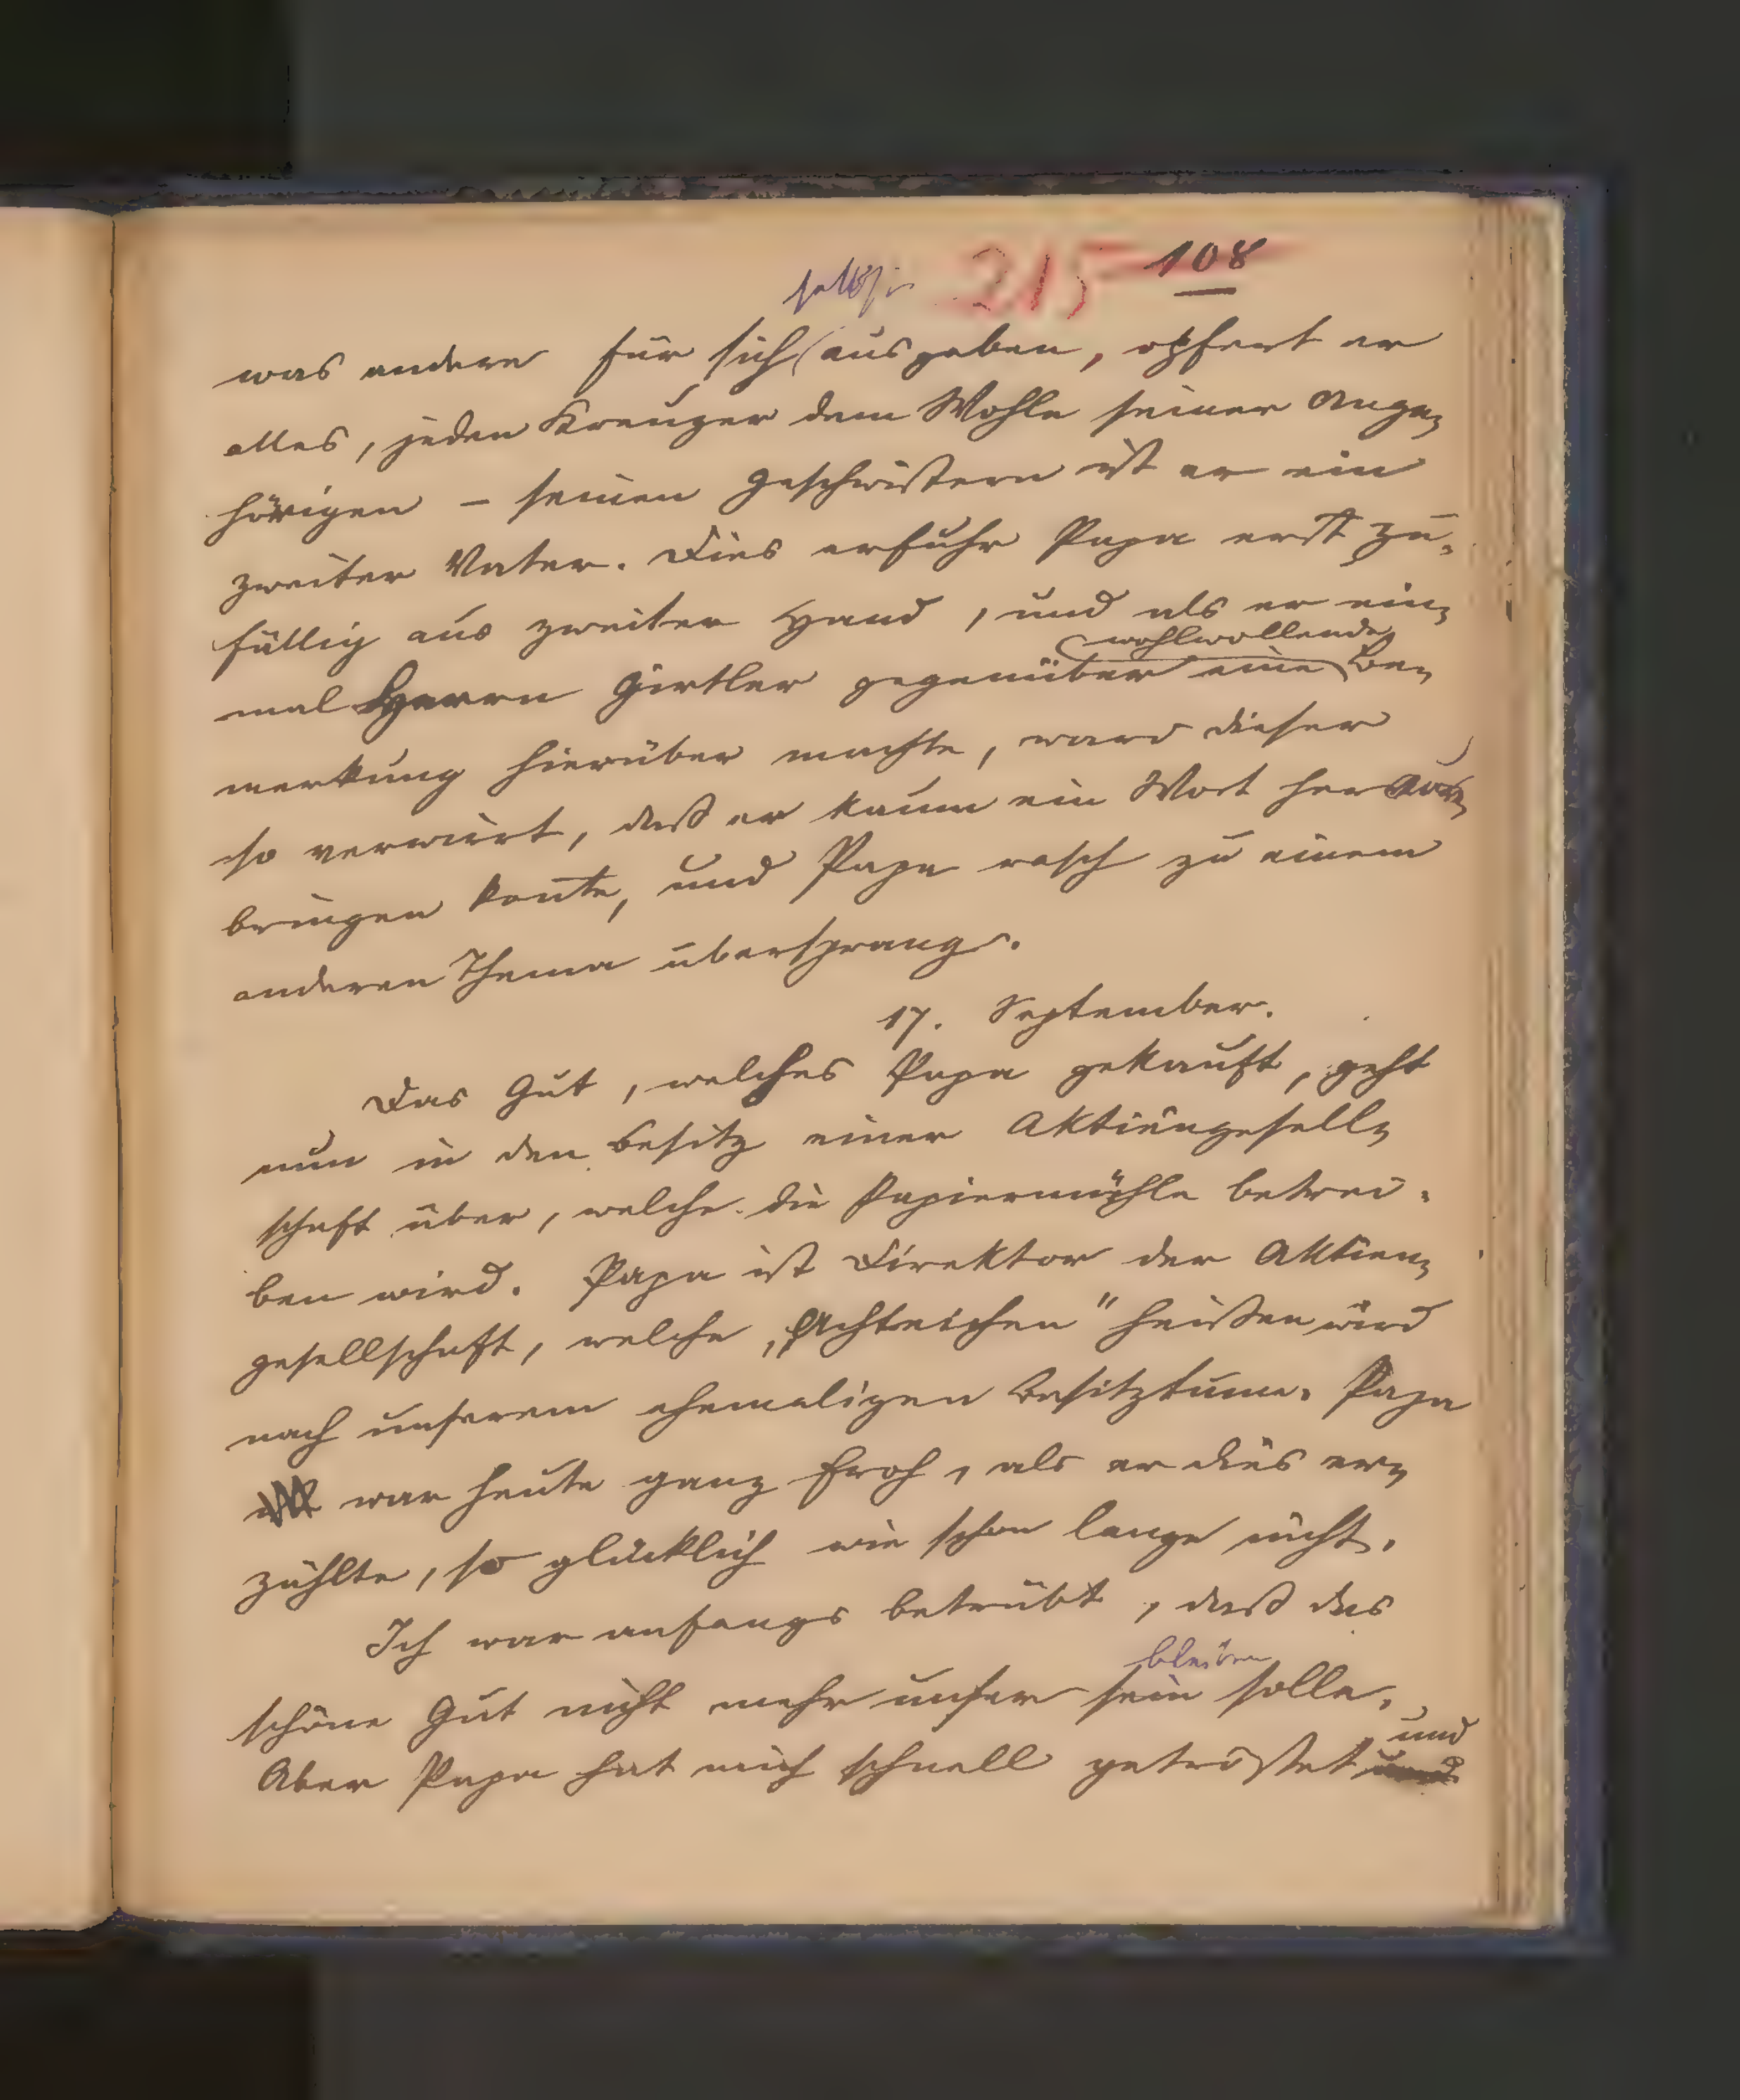 215 108
selbst
was andere für sich ausgeben, opfert er
alles, jeden Kreuzer dem Wohle seiner Ange-
hörigen – seinen Geschwistern ist er ein
zweiter Vater. Dies erfuhr Papa erst zu-
fällig aus zweiter Hand, und als er ein-
wohlwollende
mal Herrn Girtler gegenüber eine Be-
merkung hierüber machte, ward dieser
so verwirrt, daß er kaum ein Wort hervor-
bringen konte, und Papa rasch zu einem
anderen Thema übersprang.
17. September.
Das Gut, welches Papa gekauft, geht
nun in den Besitz einer Aktiengesell-
schaft über, welche die Papiermühle betrei-
ben wird. Papa ist Direktor der Aktien-
gesellschaft, welche „Achteichen" heißen wird
nach unserem ehemaligen Besitztume. Papa
war heute ganz froh, als er dies er-
zählte, so glücklich wie schon lange nicht.
Ich war anfangs betrübt, daß das
bleiben
schöne Gut nicht mehr unser sein solle.
und
Aber Papa hat mich schnell getröstet und